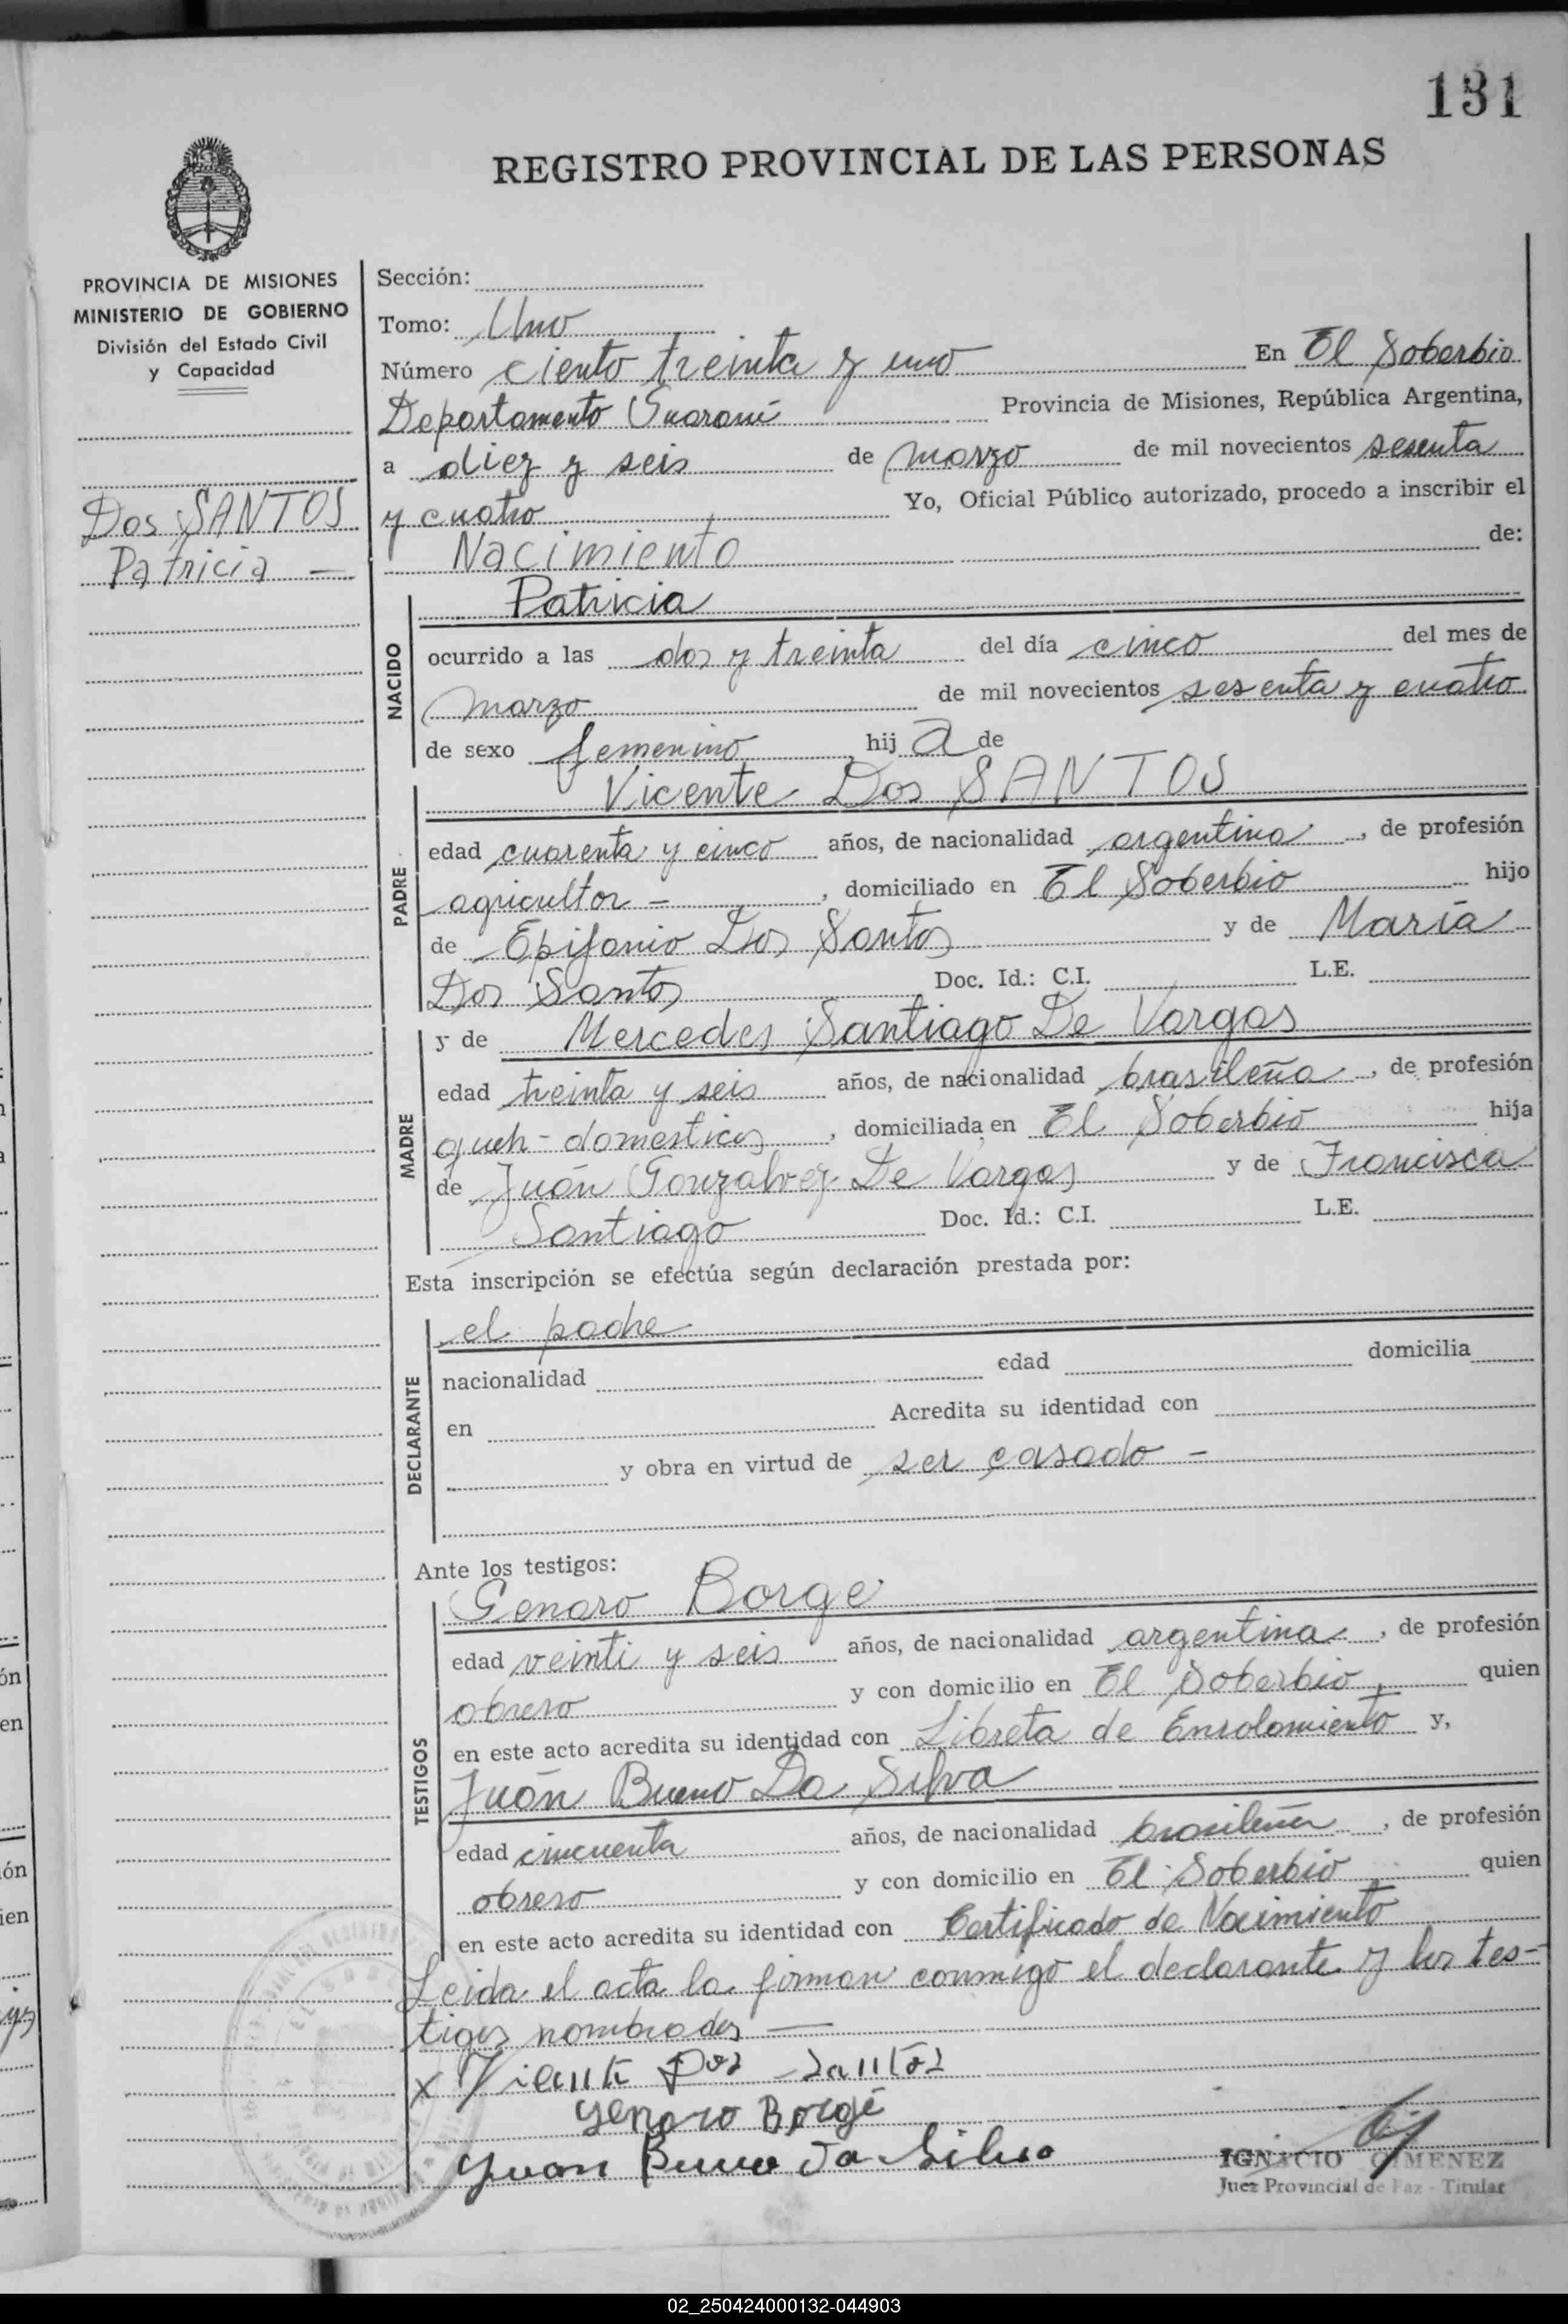 131
REGISTRO PROVINCIAL DE LAS PERSONAS
PROVINCIA DE MISIONES
MINISTERIO DE GOBIERNO
División del Estado Civil
y Capacidad
Dos SANTOS
Patricia —
Sección:
Tomo: Uno
Número ciento treinta y uno En El Soberbio
Departamento Guaraní Provincia de Misiones, República Argentina,
a diez y seis de marzo de mil novecientos sesenta
y cuatro Yo, Oficial Público autorizado, procedo a inscribir el
Nacimiento de:
NACIDO
Patricia
ocurrido a las dos y treinta del día cinco del mes de
marzo de mil novecientos sesenta y cuatro
de sexo femenino hij a de
PADRE
Vicente Dos SANTOS
edad cuarenta y cinco años, de nacionalidad argentina, de profesión
agricultor -, domiciliado en El Soberbio hijo
de Epifanio Dos Santos y de María
Dos Santos Doc. Id.: C.I. L.E.
MADRE
y de Mercedes Santiago De Vargas
edad treinta y seis años, de nacionalidad brasileña, de profesión
queh-domesticos, domiciliada en El Soberbio hija
de Juán Gonzalvez De Vargas y de Francisca
Santiago Doc. Id.: C.I. L.E.
Esta inscripción se efectúa según declaración prestada por:
DECLARANTE
el padre
nacionalidad edad domicilia
en Acredita su identidad con
y obra en virtud de ser casado -
Ante los testigos:
TESTIGOS
Genaro Borge
edad veinti y seis años, de nacionalidad argentina, de profesión
obrero y con domicilio en El Soberbio, quien
en este acto acredita su identidad con Libreta de Enrolamiento y,
Juán Bueno Da Silva
edad cincuenta años, de nacionalidad brasileña, de profesión
obrero y con domicilio en El Soberbio quien
en este acto acredita su identidad con Certificado de Nacimiento
Leida el acta la firman conmigo el declarante y los tes-
tigos nombrados —
x Vicente Dos Santos
Genaro Borge
Juan Bueno Da Silva
IGNACIO GIMENEZ
Juez Provincial de Paz - Titular
02_250424000132-044903